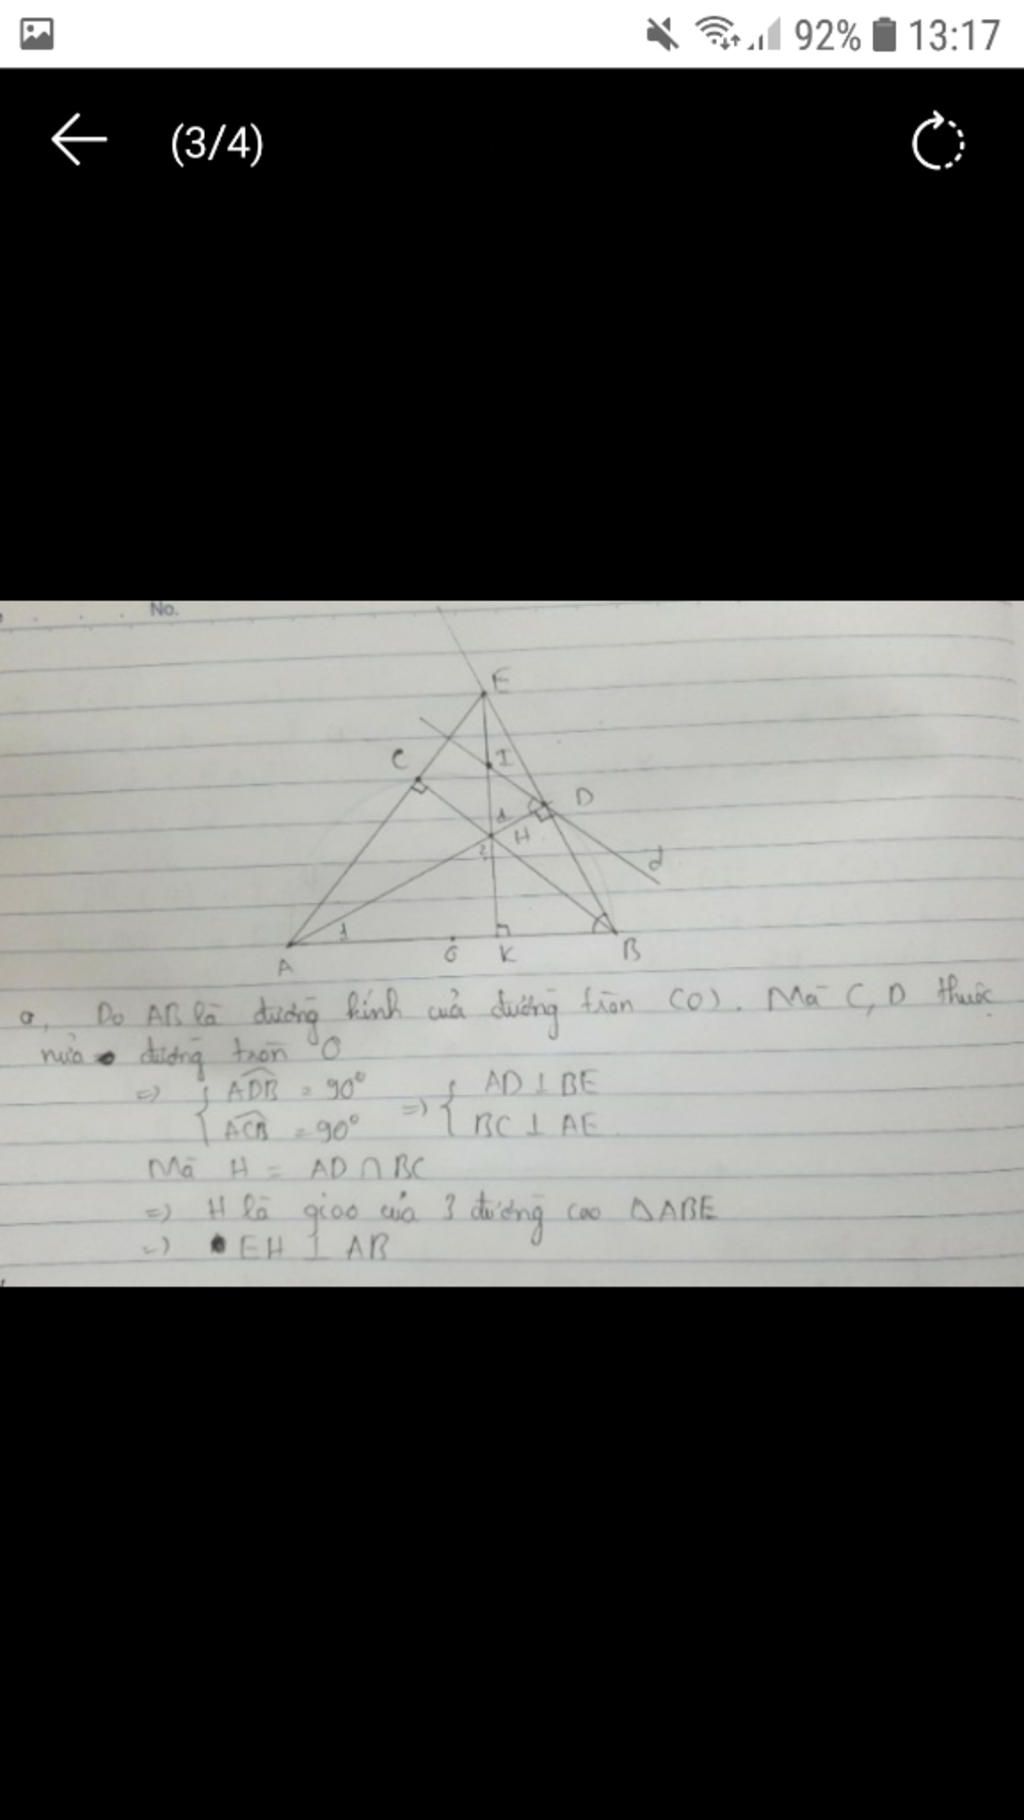 92% 13:17
(3/4)
No.
E
C
I
D
1
H
2
d
1
A
O
K
B
a, Do AB là đường kính của đường tròn (O). Mà C, D thuộc
nửa đường tròn O
=> { ADB = 90° => { AD ⊥ BE
ACB = 90° BC ⊥ AE
Mà H = AD ∩ BC
=> H là giao của 3 đường cao ΔABE
=> EH ⊥ AB